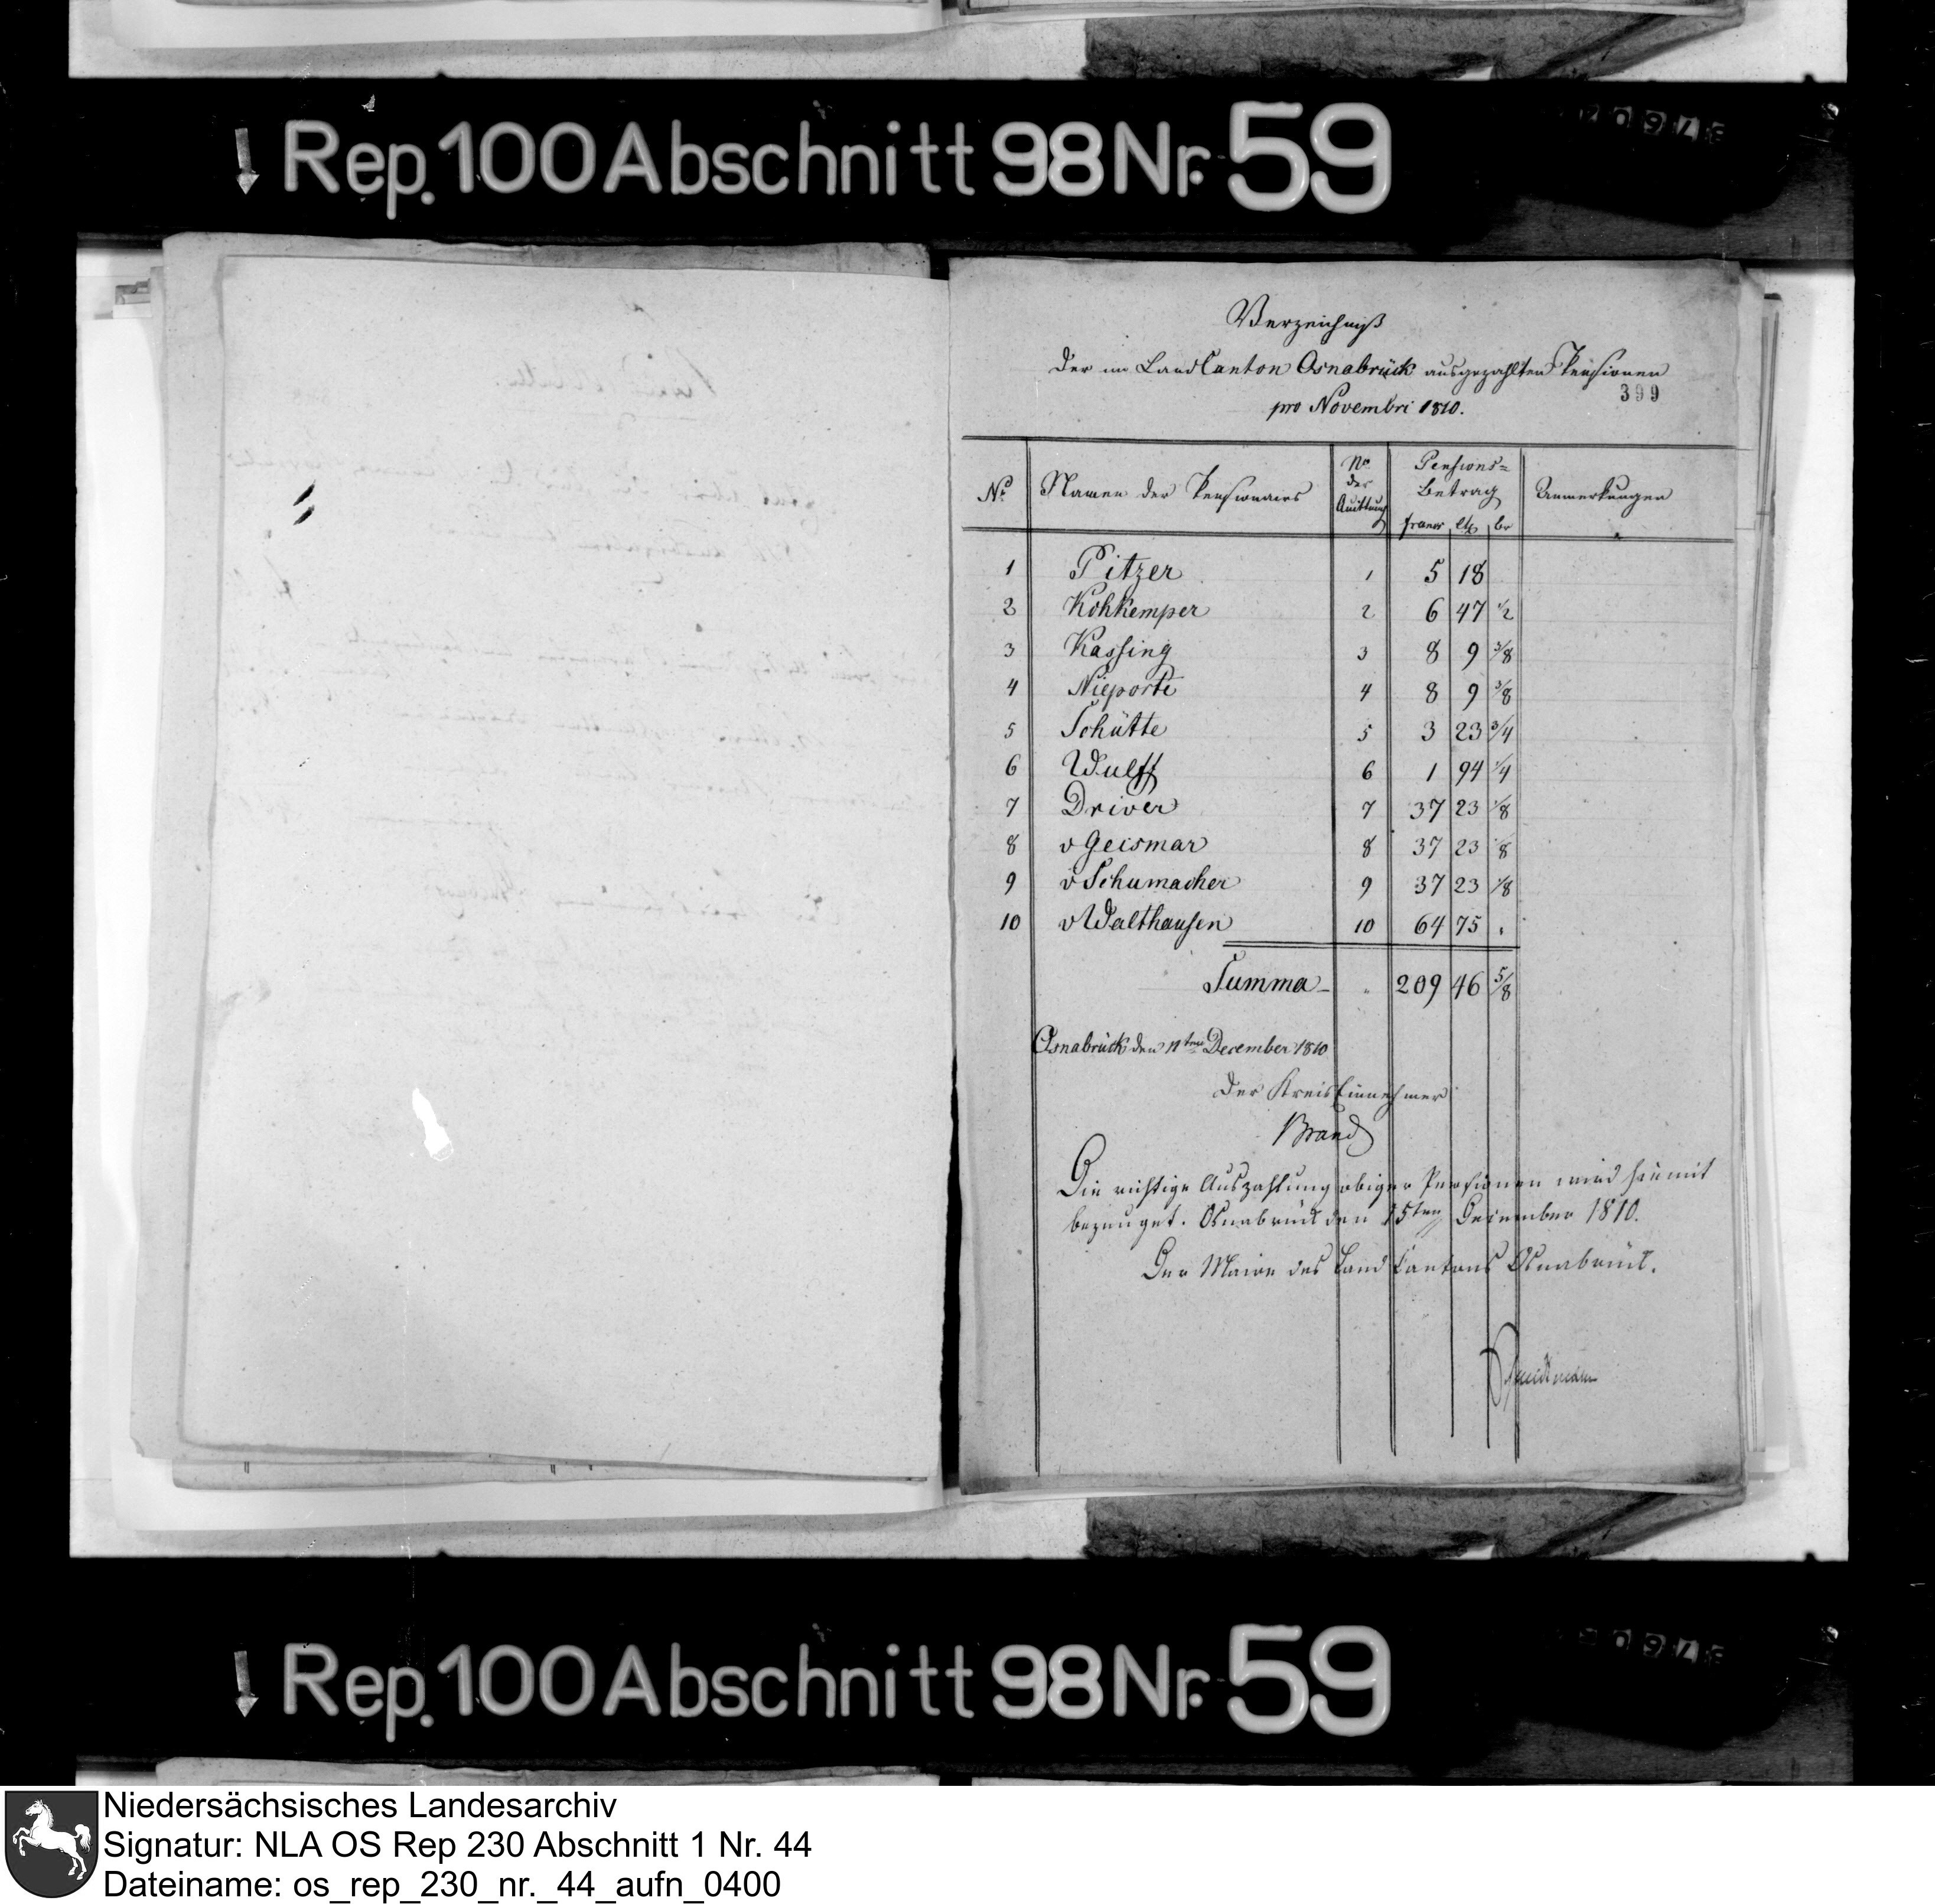 Rep. 100 Abschnitt 98 Nr. 59
Verzeichniß
der im Land Canton Osnabrück ausgezahlten Pensionen
399
pro Novembri 1810.
No Namen der Pensionairs No der Quittung Pensions= Betrag francs cts Anmerkungen
1 Pitzer 1 5 18
2 Kohkemper 2 6 47 1/2
3 Kassing 3 8 9 3/8
4 Nieporte 4 8 9 3/8
5 Schütte 5 3 23 3/4
6 Wulff 6 1 94 1/4
7 Driver 7 37 23 1/8
8 v Geismar 8 37 23 1/8
9 v Schumacher 9 37 23 1/8
10 v Walthausen 10 64 75
Summa 209 46 5/8
Osnabrück den 11ten December 1810
Der Kreis Einnehmer
Brand
Die richtige Auszahlung obiger Pensionen wird hiemit
bezeuget. Osnabrück den 15ten December 1810.
Der Maire des Land Cantons Osnabrück.
Rep. 100 Abschnitt 98 Nr. 59
Niedersächsisches Landesarchiv
Signatur: NLA OS Rep 230 Abschnitt 1 Nr. 44
Dateiname: os_rep_230_nr._44_aufn_0400